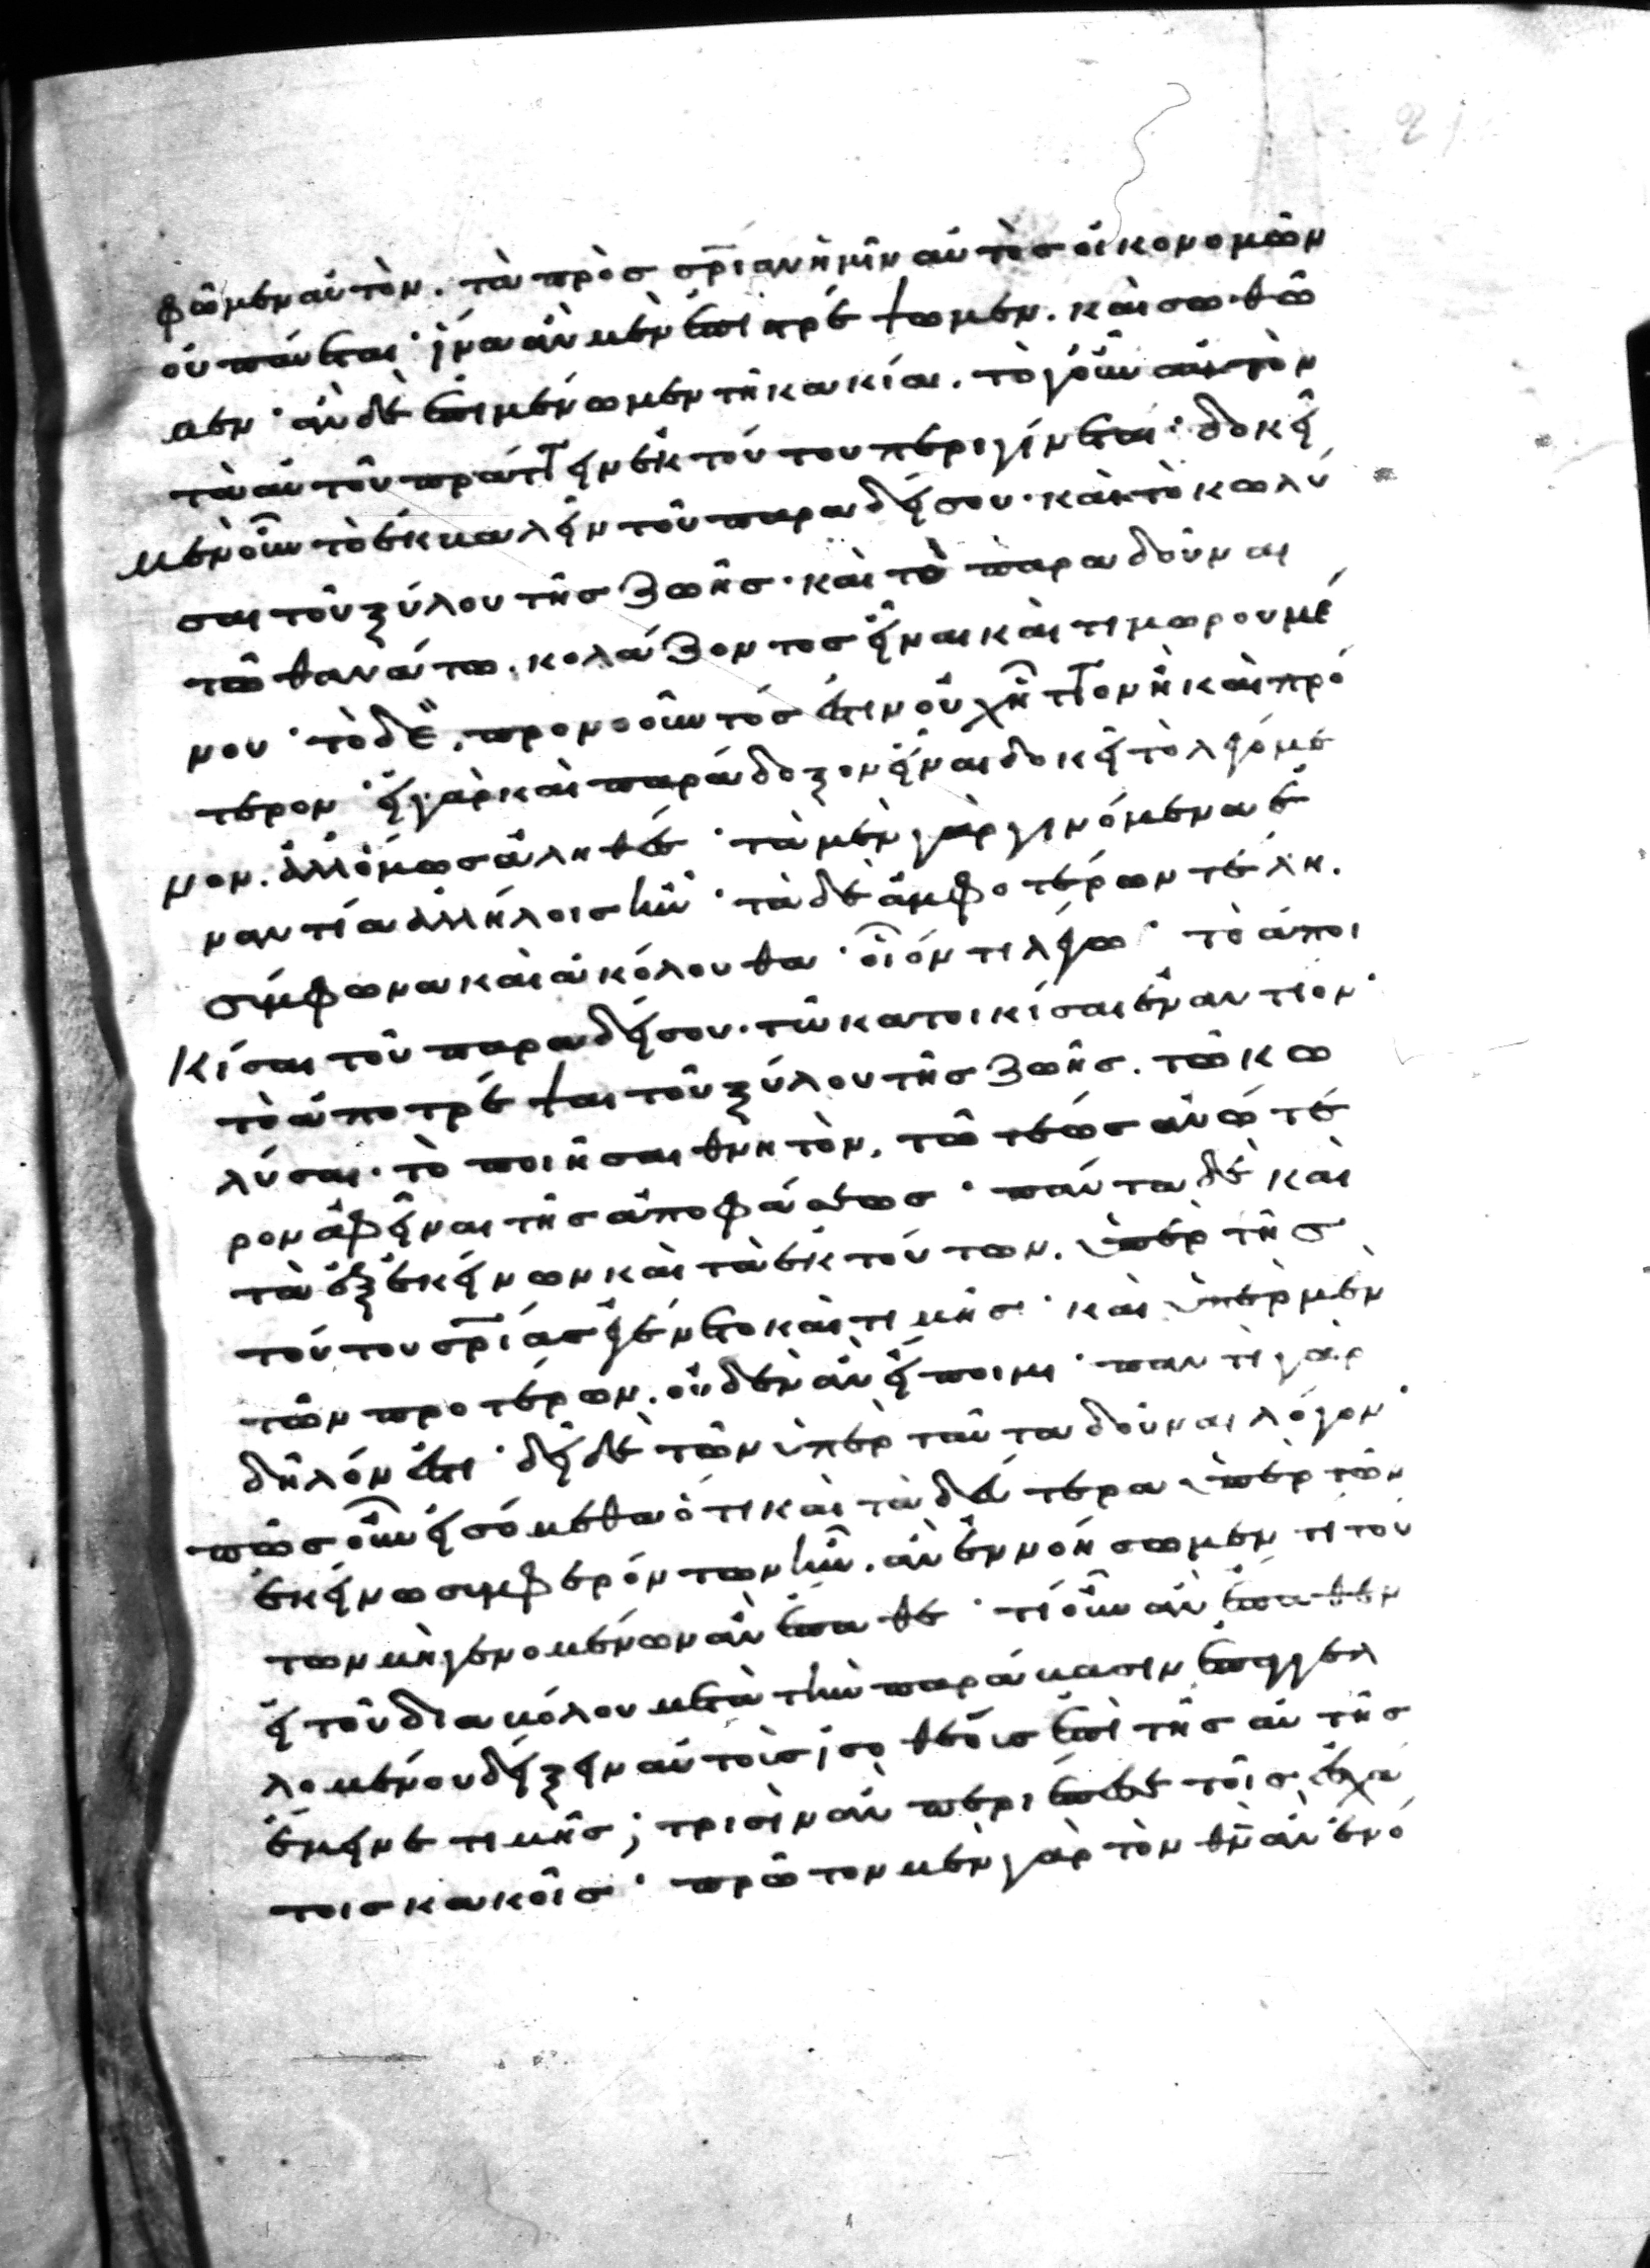 φῶμεν αὐτὸν. τὰ πρὸς σ̅ρ̅ίαν ἡμῖν αὐτὸς οἰκονομῶν
οὐ παύεται· ἵνα ἂν μὲν ἐπιστρέψωμεν. καὶ σωθῶ
μεν· ἂν δὲ ἐπιμένωμεν τῆ κακία. τὸ γοῦν αὐτὸν
τὰ αὐτοῦ πράττειν ἐκ τούτου περιγίνεται· δοκεῖ
μὲν οὖν τὸ ἐκβαλεῖν τοῦ παραδείσου. καὶ τὸ κωλύ
σαι τοῦ ξύλου τῆς ζωῆς. καὶ τὸ παραδοῦναι
τῶ θανάτω. κολάζοντος εἶναι καὶ τιμωρουμέ
νου· τὸ δὲ, προνοοῦντός ἐστιν οὐχ ἧττον ἢ καὶ πρό
τερον· εἰ γὰρ καὶ παράδοξον εἶναι δοκεῖ τὸ λεγόμε
νον. ἀλλ' ὅμως ἀληθές· τὰ μὲν γὰρ γινόμενα ἐ
ναντία ἀλλήλοις ἦν· τὰ δὲ ἀμφοτέρων τέλη.
σύμφωνα καὶ ἀκόλουθα· οἷόν τι λέγω· τὸ ἀποι
κίσαι τοῦ παραδείσου. τῶ κατοικίσαι ἐναντίον·
τὸ ἀποτρέψαι τοῦ ξύλου τῆς ζωῆς. τῶ κω
λύσαι. τὸ ποιῆσαι θνητὸν, τῶ τέως ἀνώτε
ρον ἀφεῖναι τῆς ἀποφάσεως· πάντα δὲ καὶ
τὰ ἐξ ἐκείνων καὶ τὰ ἐκ τούτων. ὑπὲρ τῆς
τούτου σ̅ρ̅ίας ἐγένετο καὶ τιμῆς· καὶ ὑπὲρ μὲν
τῶν προτέρων. οὐδὲν ἂν εἴποιμι· παντὶ γὰρ
δῆλόν ἐστι· δεῖ δὲ τῶν ὑπὲρ ταῦτα δοῦναι λόγον·
πῶς οὖν εἰσόμεθα ὅτι καὶ τὰ δεύτερα ὑπὲρ τῶν
ἐκείνω συμφερόντων ἦν. ἂν ἐννοήσωμεν τί τού
των μὴ γενομένων ἂν ἔπαθε· τί οὖν ἂν ἔπαθεν
εἰ τοῦ διαβόλου μετὰ τὴν παράβασιν ἐπαγγελ
λομένου δείξειν αὐτοῖς ἰσοθέοις ἐπὶ τῆς αὐτῆς
ἔμεινε τιμῆς; τρισὶν ἂν περιέπεσε τοῖς ἐσχά
τοις κακοῖς· πρῶτον μὲν γὰρ τὸν θ̅ν̅ ἂν ἐνό